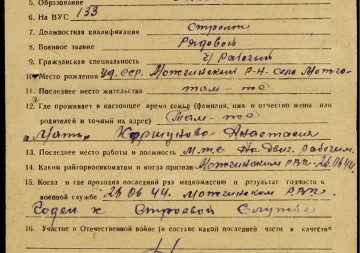 5. Образование
6. На ВУС 133
7. Должностная квалификация Стрелок
8. Военное звание Рядовой
9. Гражданская специальность ч/рабочий
10. Место рождения Уд. ССР. Можгинским р-н. село Можга
11. Последнее место жительства там-же
12. Где проживает в настоящее время семья (фамилия, имя и отчество жены или
родителей и точный их адрес) Там-же
Мать Коршунова Анастасия
13. Последнее место работы и должность рабочим
14. Каким райгорвоенкоматом и когда призван Можгинским РВК
15. Когда и где проходил последний раз медкомиссию и результат годности к
военной службе 29.06.44. Можгинском РВК
Годен к Строевой Службе
16. Участие в Отечественной войне (в составе какой последней части и качестве